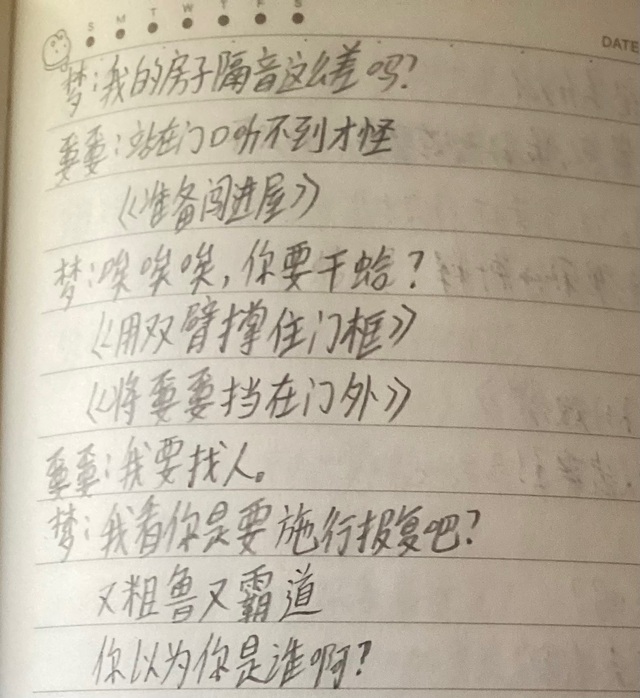 S M T W T F S
DATE
梦:我的房子隔音这么差吗?
要要:站在门口听不到才怪
《准备闯进屋》
梦:唉唉唉,你要干蛤?
《用双臂撑住门框》
《将要要挡在门外》
要要:我要找人。
梦:我看你是要施行报复吧?
又粗鲁又霸道
你以为你是谁啊?